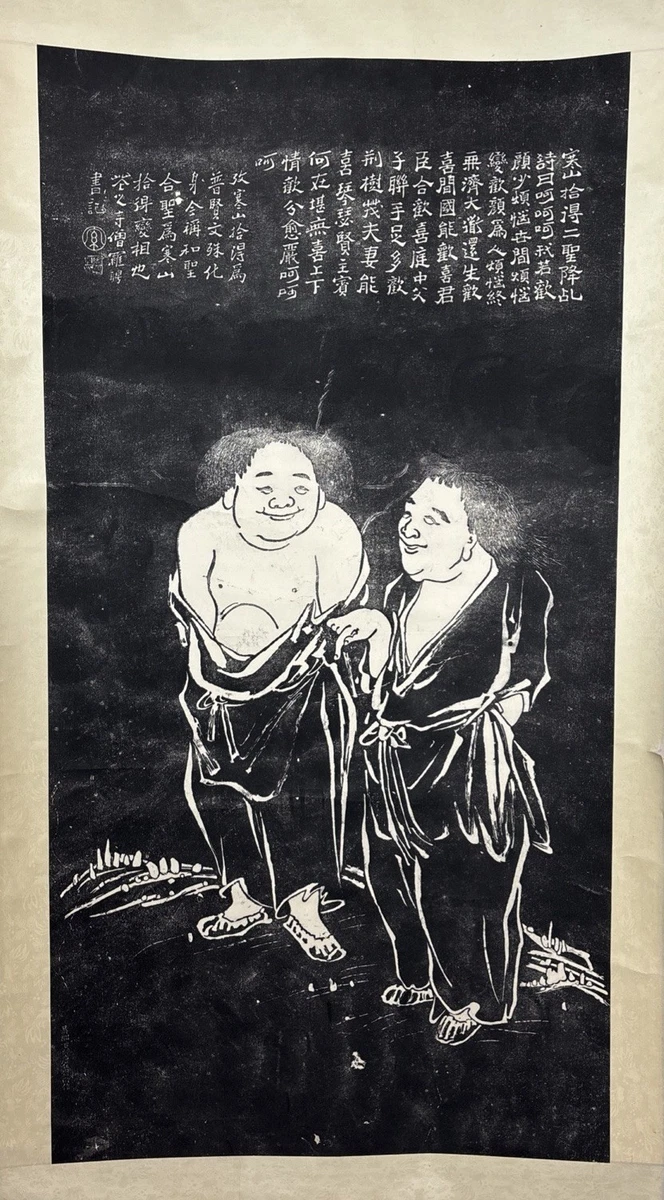 寒山拾得二聖降乩
詩曰呵呵呵我若歡
顔少煩惱世間煩惱
變歡顔為人煩惱終
無濟大道還生歡
喜間國能歡喜君
臣合歡喜庭中父
子聯手足多歡
荆樹茂夫妻能
喜琴瑟賢主賓
何在堪無喜上下
情歡分愈嚴呵呵
呵
攷寒山拾得為
普賢文殊化
身今稱和聖
合聖為寒山
拾得變相也
花之寺僧羅聘
書記